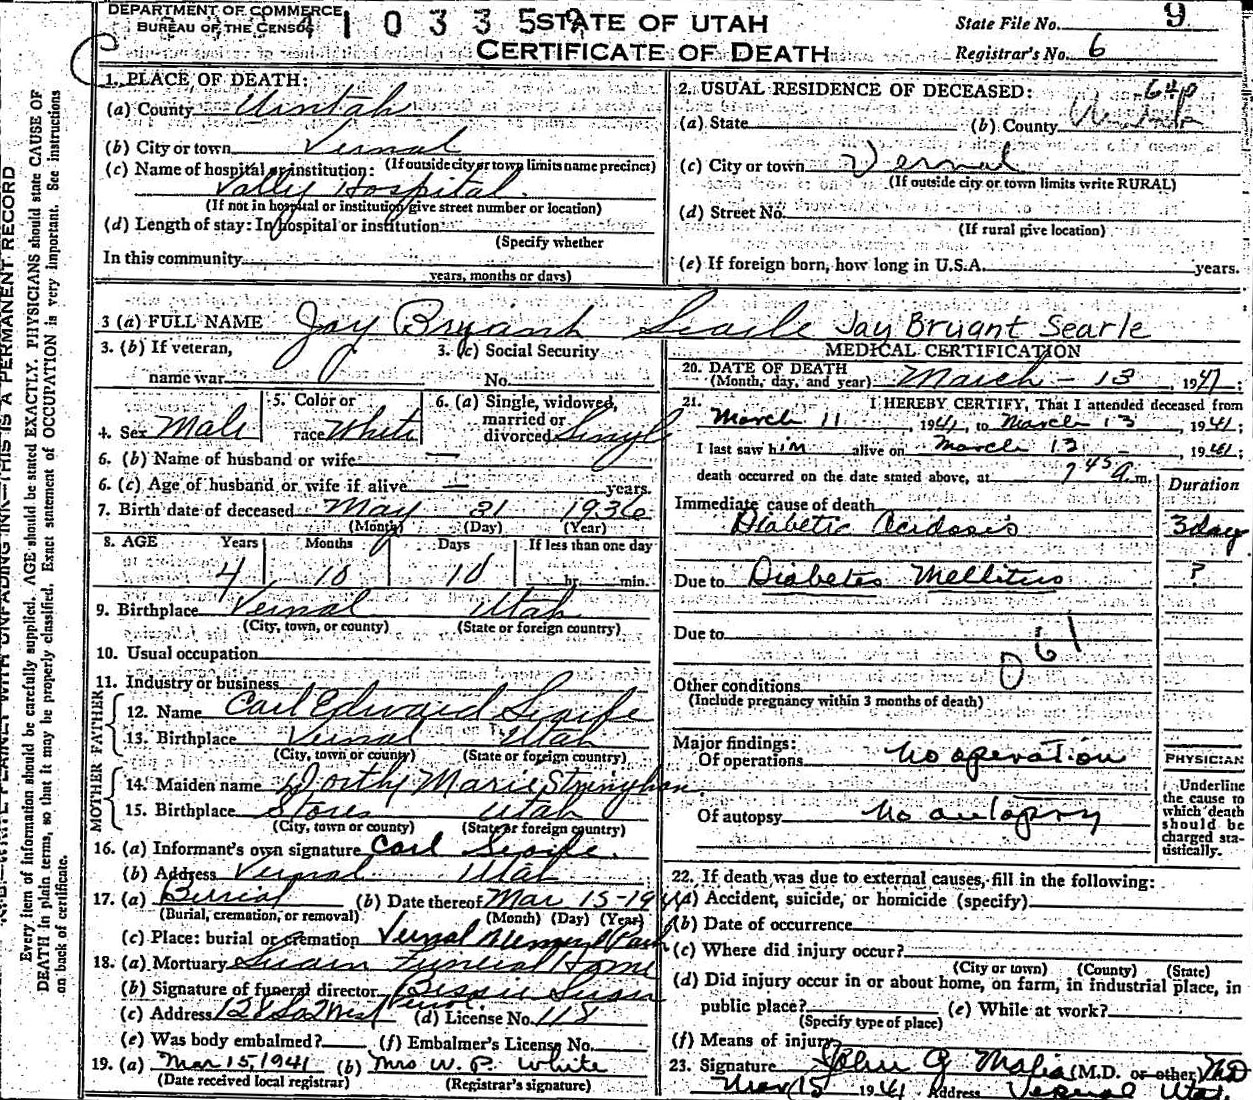 DEPARTMENT OF COMMERCE
BUREAU OF THE CENSUS
STATE OF UTAH
CERTIFICATE OF DEATH
State File No. 9
Registrar's No. 6
1. PLACE OF DEATH:
(a) County Uintah
(b) City or town Vernal
(If outside city or town limits name precinct)
(c) Name of hospital or institution:
Vally Hospital.
(If not in hospital or institution give street number or location)
(d) Length of stay: In hospital or institution
(Specify whether
In this community
years, months or days)
2. USUAL RESIDENCE OF DECEASED:
(a) State (b) County
(c) City or town Vernal
(If outside city or town limits write RURAL)
(d) Street No.
(If rural give location)
(e) If foreign born, how long in U.S.A. years.
3 (a) FULL NAME Jay Bryant Searle Jay Bryant Searle
3. (b) If veteran,
name war
3. (c) Social Security
No.
4. Sex Male
5. Color or
race White
6. (a) Single, widowed,
married or
divorced Single
6. (b) Name of husband or wife —
6. (c) Age of husband or wife if alive — years.
7. Birth date of deceased May 31 1936
(Month) (Day) (Year)
8. AGE Years Months Days If less than one day
4 10 10 hr. min.
9. Birthplace Vernal Utah
(City, town, or county) (State or foreign country)
10. Usual occupation
11. Industry or business
FATHER
12. Name Carl Edward Searle
13. Birthplace Vernal Utah
(City, town or county) (State or foreign country)
MOTHER
14. Maiden name Dorthy Marie Stringham.
15. Birthplace Utah
(City, town or county) (State or foreign country)
16. (a) Informant's own signature Carl Searle.
(b) Address Vernal Utah
17. (a) Burial (b) Date thereof Mar 15-1941
(Burial, cremation, or removal) (Month) (Day) (Year)
(c) Place: burial or cremation Vernal Memory Park
18. (a) Mortuary Swain Funeral Home
(b) Signature of funeral director Bessie Swain
(c) Address 128 So 2 West (d) License No. 118
(e) Was body embalmed? (f) Embalmer's License No.
19. (a) Mar 15, 1941 (b) Mrs W. P. White
(Date received local registrar) (Registrar's signature)
MEDICAL CERTIFICATION
20. DATE OF DEATH
(Month, day, and year) March - 13, 1941;
21. I HEREBY CERTIFY, That I attended deceased from
March 11, 1941, to March 13, 1941;
I last saw him alive on March 13 -, 1941;
death occurred on the date stated above, at 7 45 a. m.
Duration
Immediate cause of death
Diabetic Acidosis 3 day
Due to Diabetes Mellitus ?
Due to
061
Other conditions
(Include pregnancy within 3 months of death)
Major findings:
Of operations no operation
Of autopsy no autopsy
PHYSICIAN
Underline
the cause to
which death
should be
charged sta-
tistically.
22. If death was due to external causes, fill in the following:
(a) Accident, suicide, or homicide (specify)
(b) Date of occurrence
(c) Where did injury occur?
(City or town) (County) (State)
(d) Did injury occur in or about home, on farm, in industrial place, in
public place? (e) While at work?
(Specify type of place)
(f) Means of injury
23. Signature John G (M.D. or other) MD
Mar 15 1941 Address Vernal Utah.
Every item of information should be carefully supplied. AGE should be stated EXACTLY. PHYSICIANS should state CAUSE OF
DEATH in plain terms, so that it may be properly classified. Exact statement of OCCUPATION is very important. See instructions
on back of certificate.